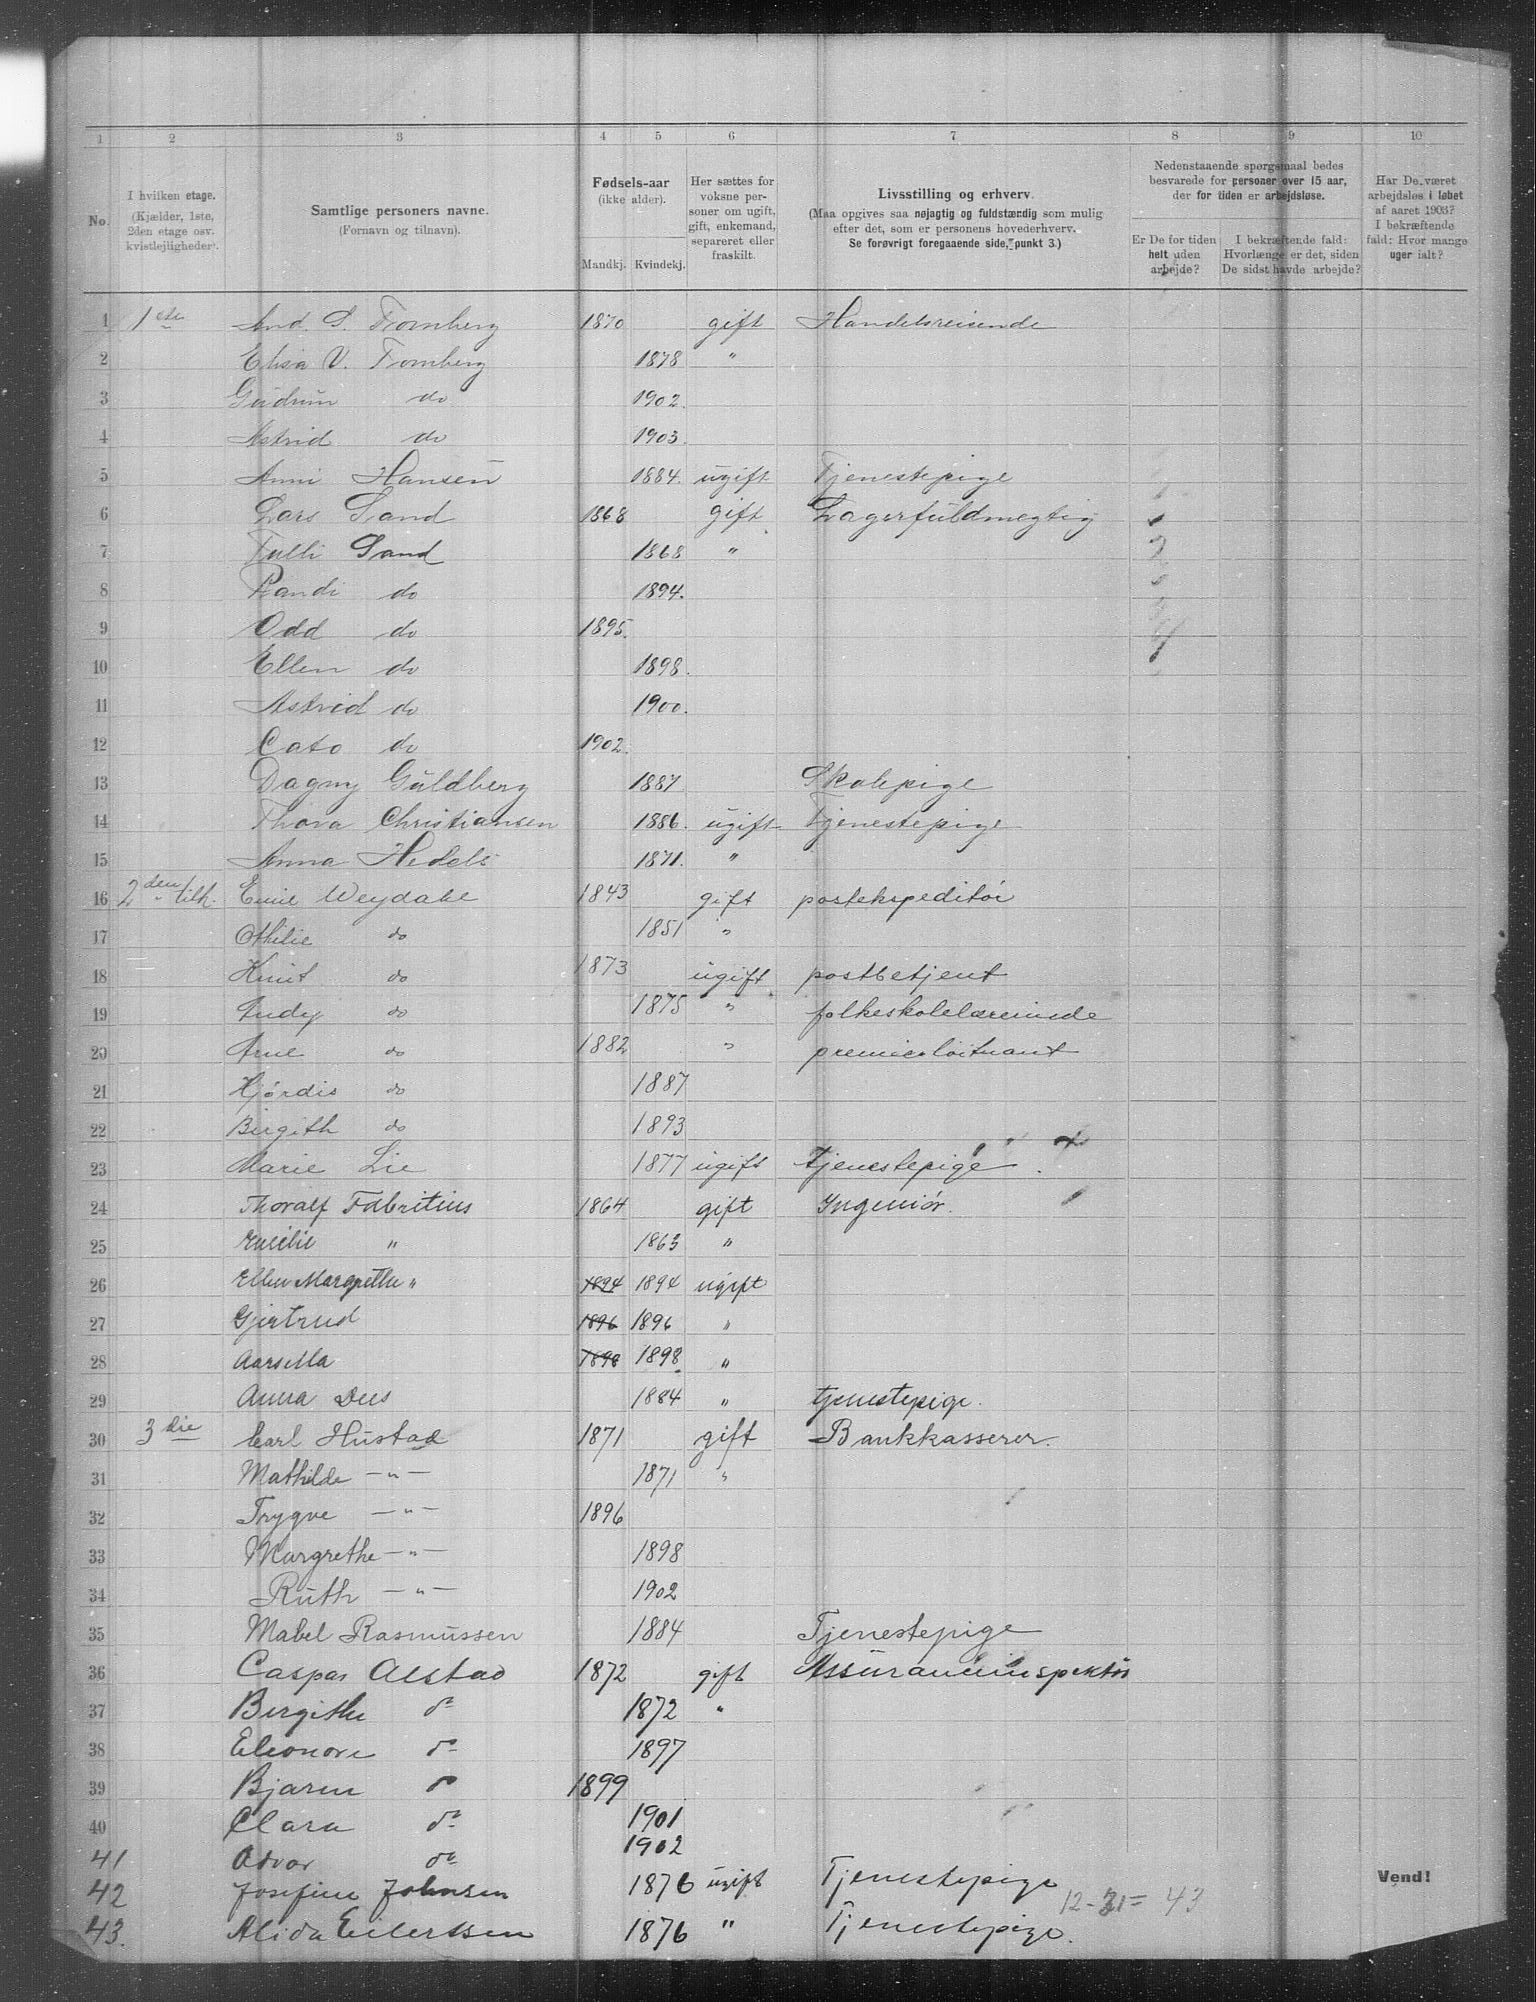 1 2 3 4 5 6 7 8 9 10
No.
I hvilken etage. (Kjælder, 1ste, 2den etage osv. kvistlejligheder).
Samtlige personers navne. (Fornavn og tilnavn).
Fødsels-aar (ikke alder). Mandkj. Kvindekj.
Her sættes for voksne personer om ugift, gift, enkemand, separeret eller fraskilt.
Livsstilling og erhverv. (Maa opgives saa nøjagtig og fuldstændig som mulig efter det, som er personens hovederhverv. Se forøvrigt foregaaende side, punkt 3.)
Nedenstaaende spørgsmaal bedes besvarede for personer over 15 aar, der for tiden er arbejdsløse.
Er De for tiden helt uden arbejde?
I bekræftende fald: Hvorlænge er det, siden De sidst havde arbejde?
Har De været arbejdsløs i løbet af aaret 1903? I bekræftende fald: Hvor mange uger ialt?
1 1ste And. S. Fornberg 1870 gift Handelsreisende
2 Elisa V. Fornberg 1878 "
3 Gudrun do 1902.
4 Astrid do 1903.
5 Anni Hansen 1884. ugift Tjenestepige
6 Lars Sand 1868 gift Lagerfuldmegtig
7 Tulli Sand 1868 "
8 Randi do 1894.
9 Odd do 1895.
10 Ellen do 1898.
11 Astrid do 1900.
12 Cato do 1902.
13 Dagny Guldberg 1887 Skolepige
14 Thora Christiansen 1886. ugift Tjenestepige
15 Anna Hedels 1871. "
16 2den tilh. Emil Weydahl 1843 gift postekspeditør
17 Othilie do 1851 "
18 Knut do 1873 ugift postbetjent
19 Andy do 1875 " folkeskolelærerinde
20 Arne do 1882 " premierløitnant
21 Hjørdis do 1887
22 Birgith do 1893
23 Marie Lie 1877 ugift tjenestepige.
24 Thoralf Fabritius 1864 gift Ingeniør.
25 Emilie " 1863 "
26 Ellen Margrethe " 1894 1894 ugift
27 Gjertrud 1896 1896 "
28 Aarsilla 1898 1898 "
29 Anna Dees 1884 " tjenestepige.
30 3die Carl Hustad 1871 gift Bankkasserer.
31 Mathilde —"— 1871 "
32 Trygve —"— 1896
33 Margrethe —"— 1898
34 Ruth —"— 1902
35 Mabel Rasmussen 1884 Tjenestepige
36 Caspar Alstad 1872 gift Assuranceinspektør
37 Birgithe do 1872 "
38 Eleonore do 1897
39 Bjarne do 1899
40 Clara do 1901
41 Advor do 1902
42 Josefine Johnsen 1876 ugift Tjenestepige
12-31= 43
43. Alida Eilertssen 1876 " Tjenestepige.
Vend!